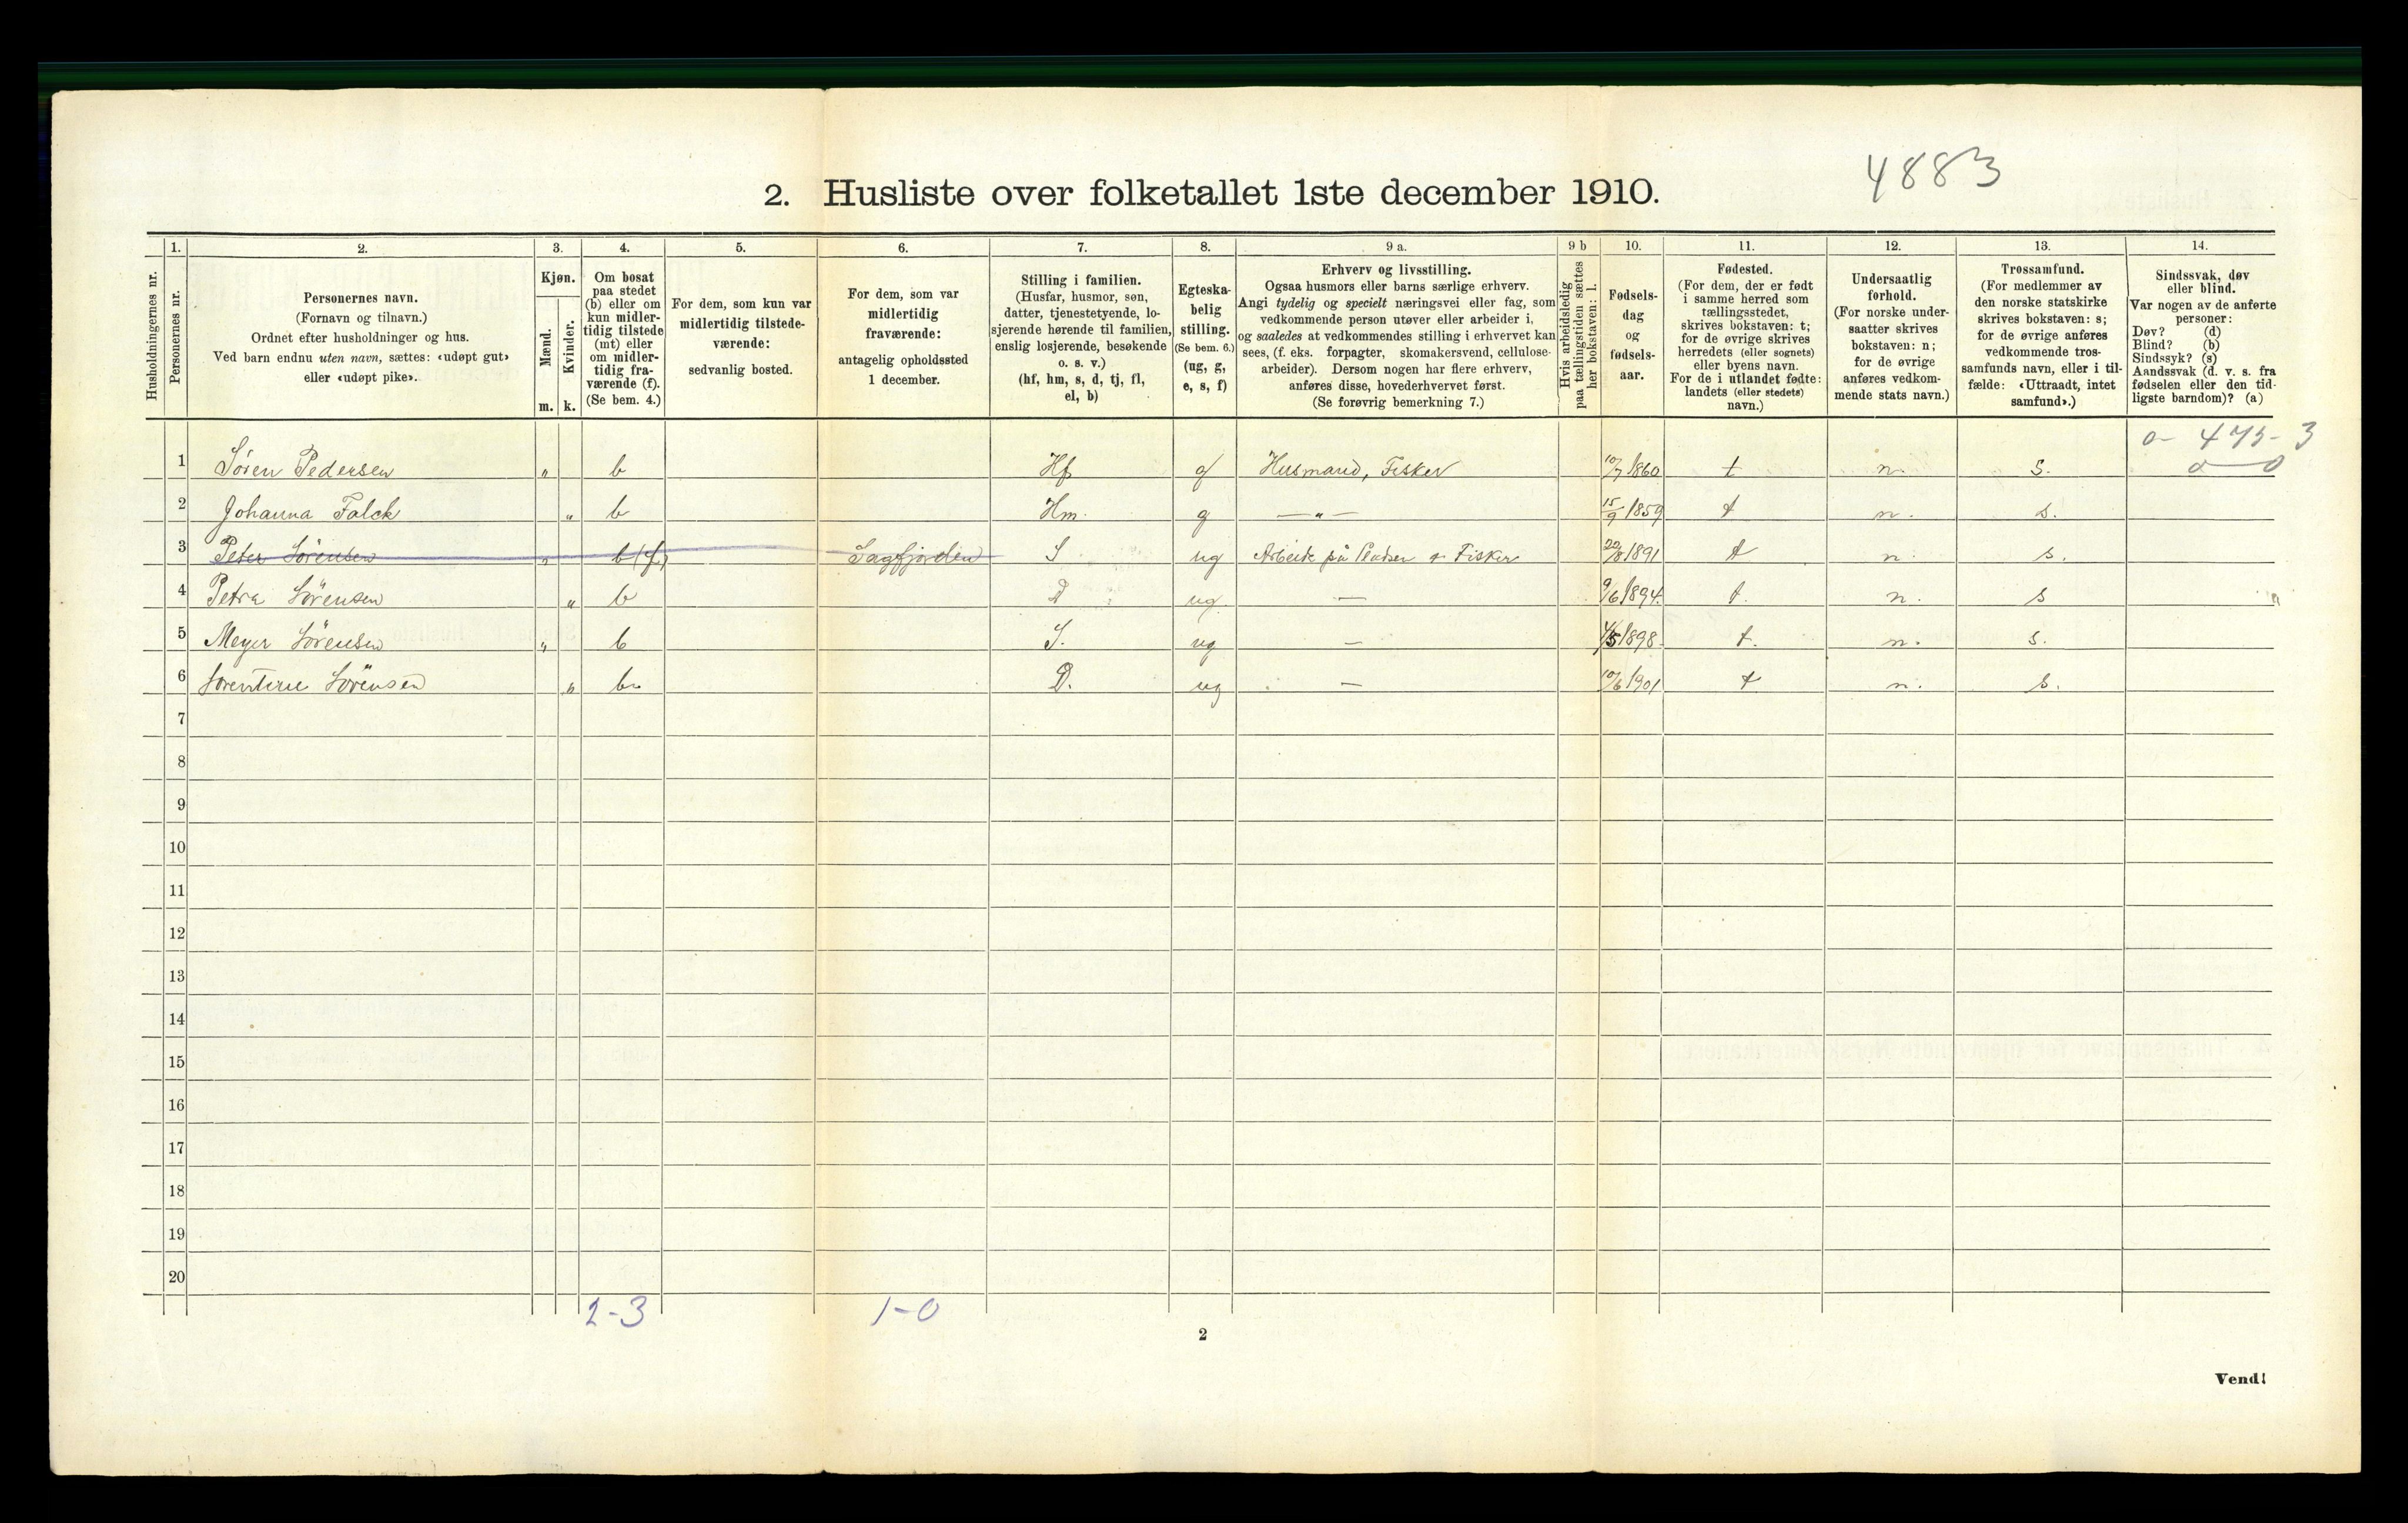 4883
2. Husliste over folketallet 1ste december 1910.
1. 2. 3. 4. 5. 6. 7. 8. 9 a. 9 b 10. 11. 12. 13. 14.
Husholdningernes nr.
Personernes nr.
Personernes navn.
(Fornavn og tilnavn.)
Ordnet efter husholdninger og hus.
Ved barn endnu uten navn, sættes: «udøpt gut»
eller «udøpt pike».
Kjøn.
Mænd.
Kvinder.
m. k.
Om bosat
paa stedet
(b) eller om
kun midler-
tidig tilstede
(mt) eller
om midler-
tidig fra-
værende (f).
(Se bem. 4.)
For dem, som kun var
midlertidig tilstede-
værende:
sedvanlig bosted.
For dem, som var
midlertidig
fraværende:
antagelig opholdssted
1 december.
Stilling i familien.
(Husfar, husmor, søn,
datter, tjenestetyende, lo-
sjerende hørende til familien,
enslig losjerende, besøkende
o. s. v.)
(hf, hm, s, d, tj, fl,
el, b)
Egteska-
belig
stilling.
(Se bem. 6.)
(ug, g,
e, s, f)
Erhverv og livsstilling.
Ogsaa husmors eller barns særlige erhverv.
Angi tydelig og specielt næringsvei eller fag, som
vedkommende person utøver eller arbeider i,
og saaledes at vedkommendes stilling i erhvervet kan
sees, (f. eks. forpagter, skomakersvend, cellulose-
arbeider). Dersom nogen har flere erhverv,
anføres disse, hovederhvervet først.
(Se forøvrig bemerkning 7.)
Hvis arbeidsledig
paa tællingstiden sættes
her bokstaven: l.
Fødsels-
dag
og
fødsels-
aar.
Fødested.
(For dem, der er født
i samme herred som
tællingsstedet,
skrives bokstaven: t;
for de øvrige skrives
herredets (eller sognets)
eller byens navn.
For de i utlandet fødte:
landets (eller stedets)
navn.)
Undersaatlig
forhold.
(For norske under-
saatter skrives
bokstaven: n;
for de øvrige
anføres vedkom-
mende stats navn.)
Trossamfund.
(For medlemmer av
den norske statskirke
skrives bokstaven: s;
for de øvrige anføres
vedkommende tros-
samfunds navn, eller i til-
fælde: «Uttraadt, intet
samfund».)
Sindssvak, døv
eller blind.
Var nogen av de anførte
personer:
Døv? (d)
Blind? (b)
Sindssyk? (s)
Aandssvak (d. v. s. fra
fødselen eller den tid-
ligste barndom)? (a)
0- 475-3
0—0
1 Sören Pedersen " b Hf g Husmand, Fisker 10/7 1860 t n. s.
2 Johanna Falck " b Hm. g —"— 15/9 1859 t n. s.
3 Peter Sörensen " b (f) Sagfjorden S ug Arbeide på Pladsen & Fisker 22/8 1891 t n. s.
4 Petra Sörensen " b D ug — 9/6 1894. t. n. s
5 Meyer Sörensen " b S. ug — 4/5 1898. t. n. s.
6 Sorentine Sörensen " b. D. ug — 10/6 1901 t n. s.
7
8
9
10
11
12
13
14
15
16
17
18
19
20
2-3 1-0
2
Vend!